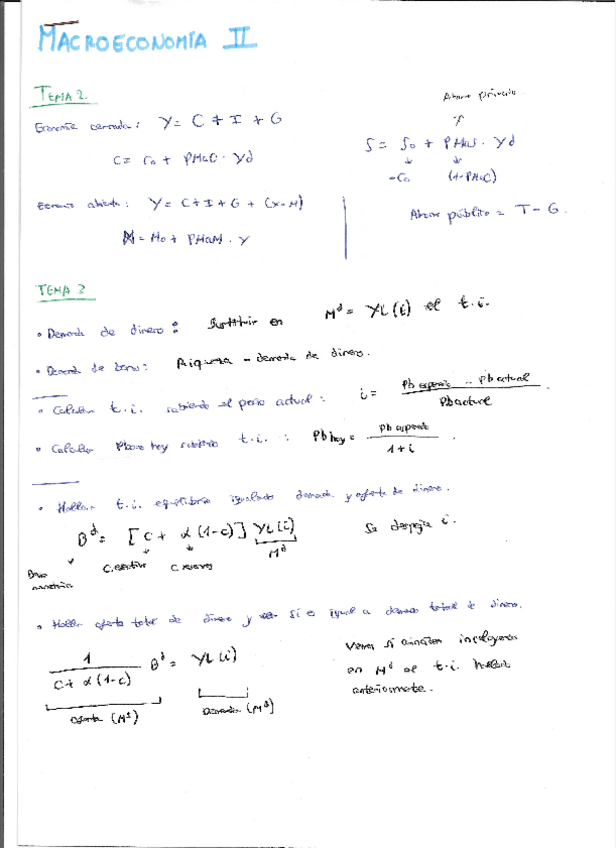 MACROECONOMÍA II
TEMA 2
Economía cerrada: Y = C + I + G
C = C0 + PMaC · Yd
Ahorro privado
S = S0 + PMaS · Yd
-C0 (1-PMaC)
Economía abierta: Y = C + I + G + (X-M)
M = M0 + PMaM · Y
Ahorro público = T - G.
TEMA 3
• Demanda de dinero: Sustituir en Md = YL(i) el t.i.
• Demanda de bonos: Riqueza - demanda de dinero.
• Calcular t.i. sabiendo el precio actual: i = (Pb esperado - Pb actual) / Pb actual
• Calcular Pbono hoy sabiendo t.i.: Pb hoy = Pb esperado / 1+i.
• Hallar t.i. equilibrio igualando demanda y oferta de dinero.
Bd = [C + α(1-c)] YL(i) Se despeja i.
Base monetaria C. efectivo C. reservas Md
• Hallar oferta total de dinero y ver si es igual a demanda total de dinero.
1 / (C + α(1-c)) Bd = YL(i)
Oferta (Ms) Demanda (Md)
Vemos si coinciden
en Md el t.i. hallado
anteriormente.